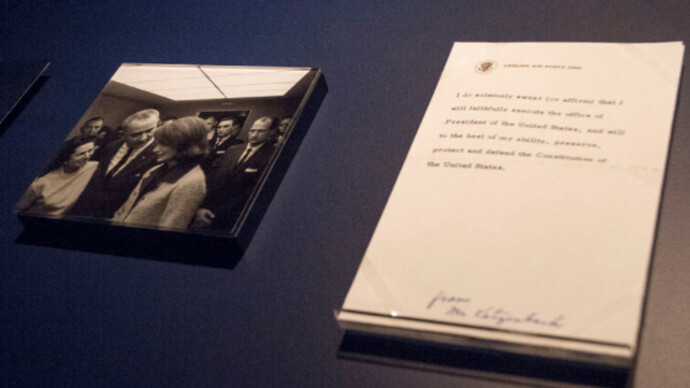 ABOARD AIR FORCE ONE
I do solemnly swear (or affirm) that I
will faithfully execute the office of
President of the United States, and will
to the best of my ability, preserve,
protect and defend the Constitution of
the United States.
from
Mr Katzenbach